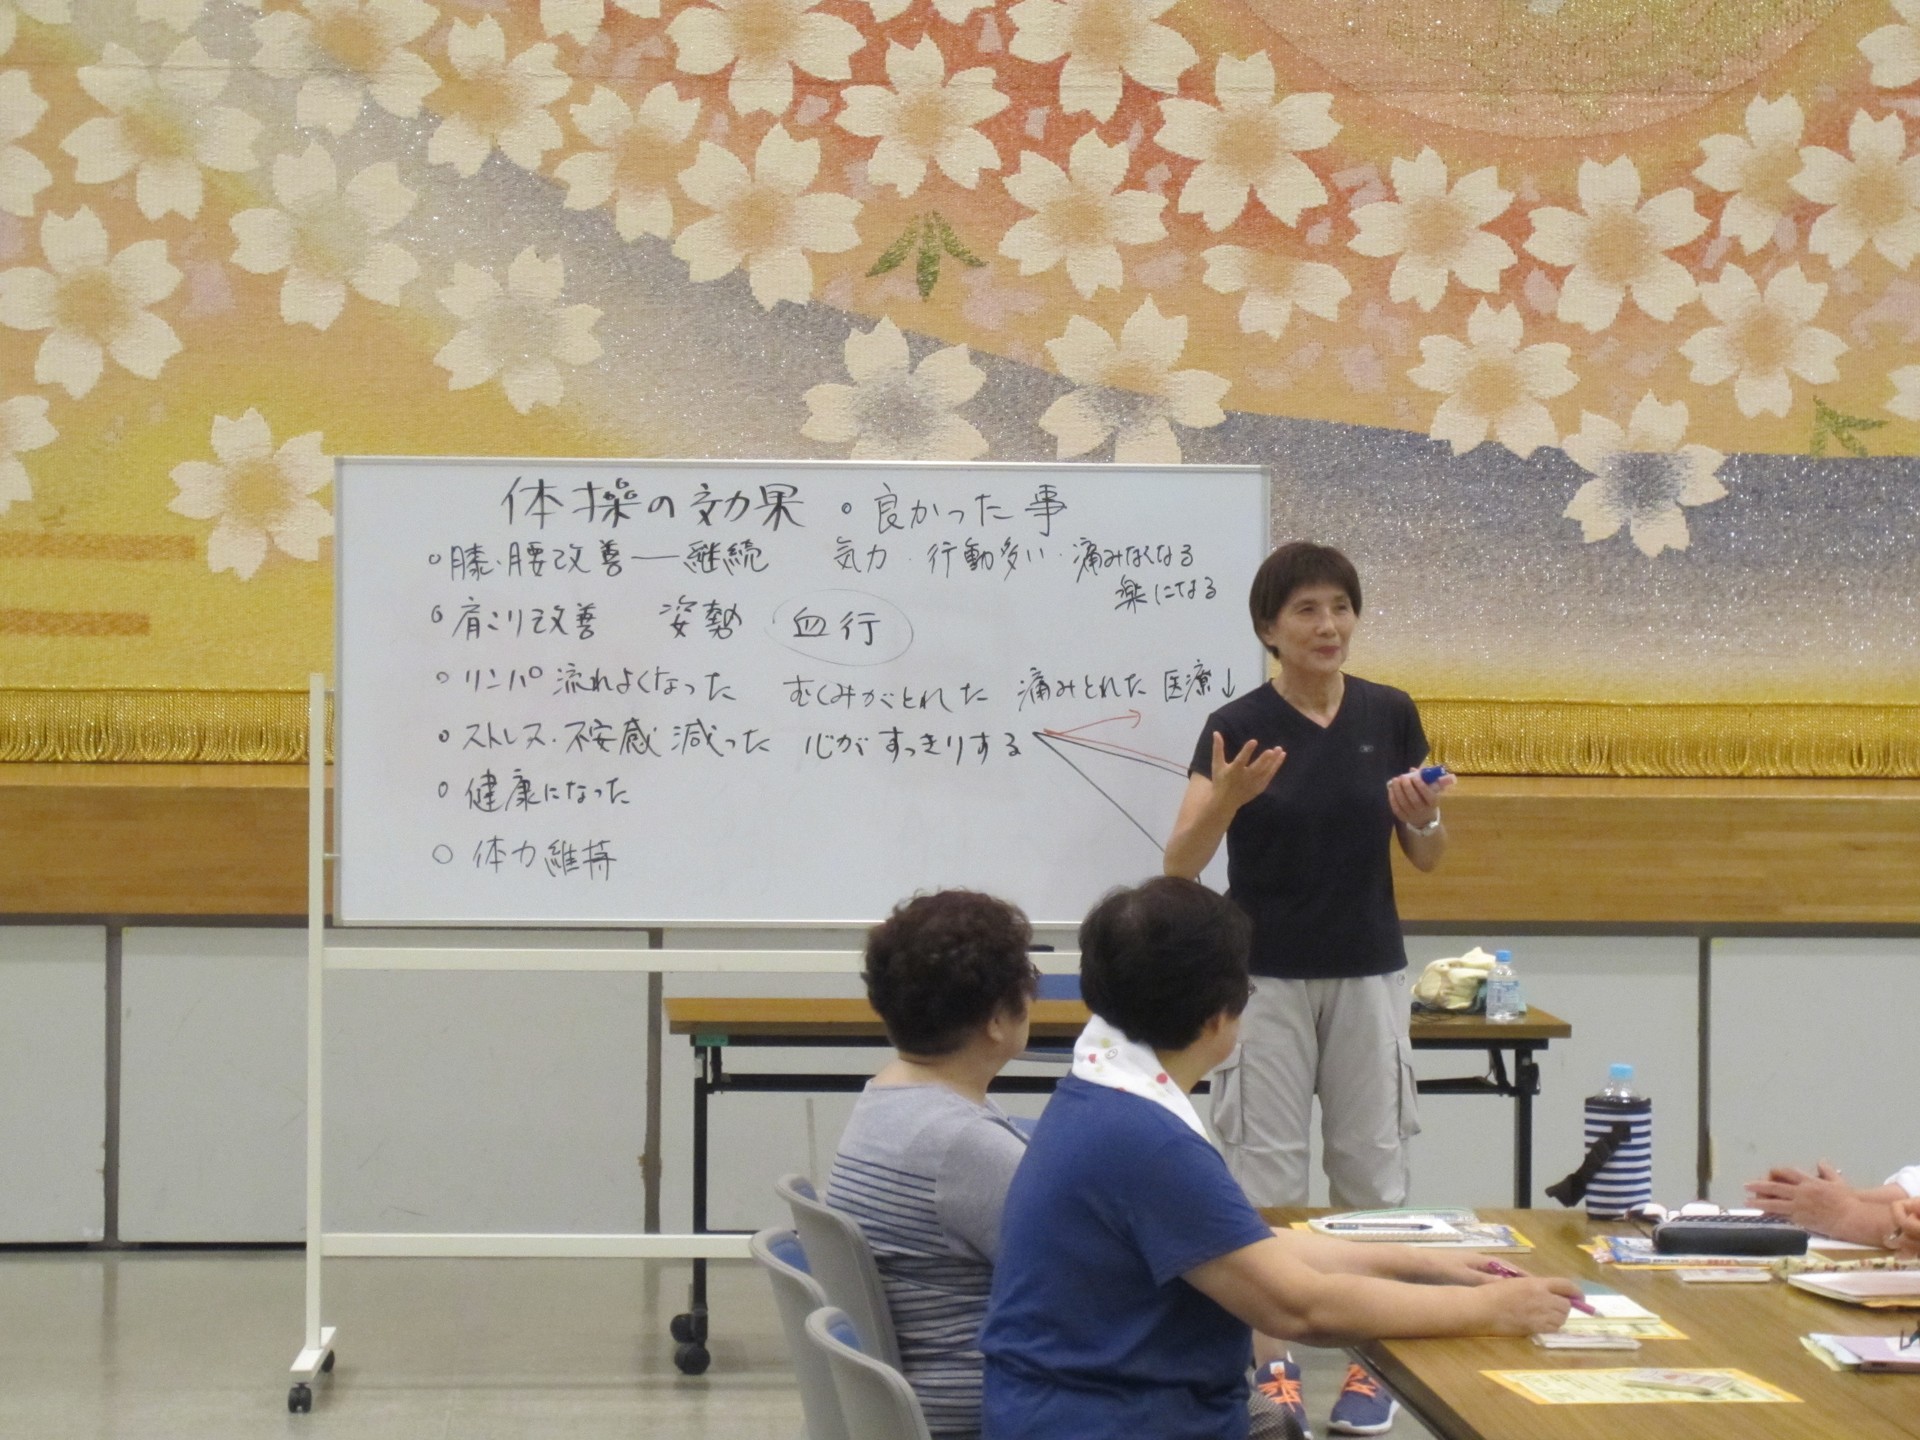 体操の効果 ○良かった事
○膝・腰改善―継続 気力・行動多い・痛みなくなる
楽になる
○肩こり改善 姿勢 血行
○リンパ流れよくなった むくみがとれた 痛みとれた 医療↓
○ストレス・不安感減った 心がすっきりする
○健康になった
○体力維持